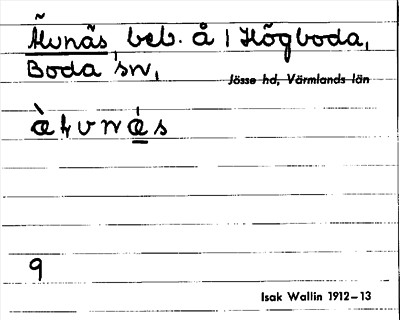 Älvnäs beb. å 1 Högboda,
Boda sn,
Jösse hd, Värmlands län
9
Isak Wallin 1912–13